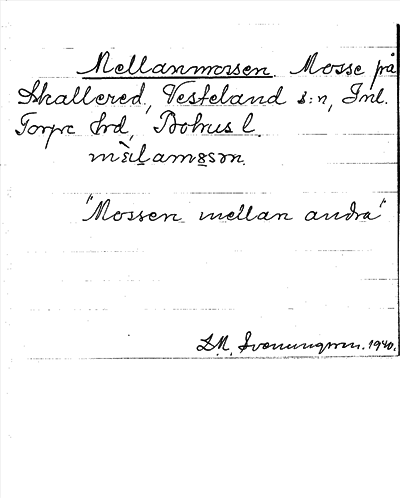 Mellanmossen. Mosse på
Skallered, Vesteland s:n, Inl.
Torpe hrd, Bohus l.
"Mossen mellan andra"
1940.